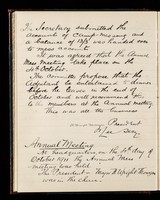 The Secretary submitted the
accounts of Camp-messing and
a balance of was handed over
to mess accounts.
It was agreed that the
Mess Meeting take place on the
4th October.
The committee propose that the
Adjutant be entertained to dinner
before he leaves in the end of
October and will recommend
to the members at the Annual Meeting
This was all the business
President
Secy
Annual Meeting
At Headquarters on the 4th day of
October 1911 the Annual Mess
Meeting was held.
The President Major Wright
was in the Chair.